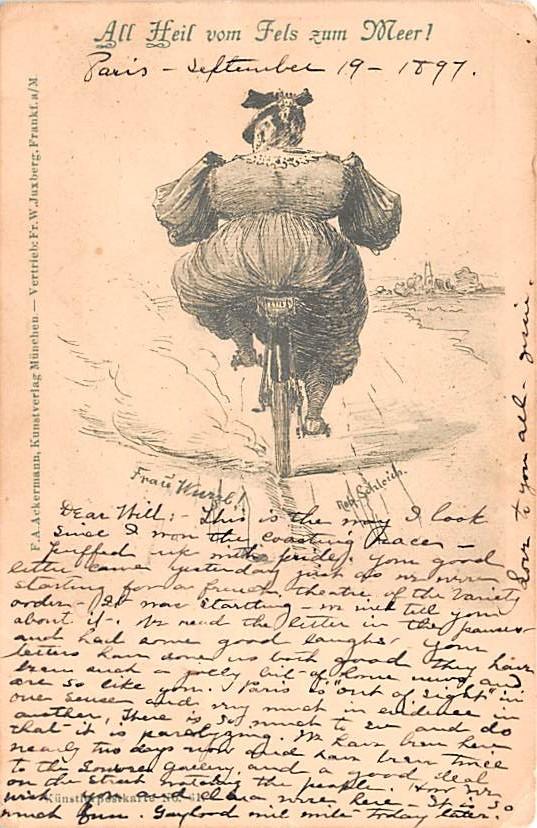 All Heil vom Fels zum Meer!
Paris - September 19 - 1897.
F. A. Ackermann, Kunstverlag München. — Vertrieb: Fr. W. Juxberg, Frankf. a/M
Frau Wurzl!
Rob. Schleich.
Dear Will: - This is the way I look
since I won the coasting races -
Puffed up with pride. Your good
letter came yesterday just as we were
starting for a french theatre of the variety
order. It was startling - we will tell you
about it -. We read the letter in the pauses
and had some good laughs. Your
letters have done us both good they have
been such a jolly bit of home news, and
are so like you. Paris is "out of sight" in
one sense and very much in evidence in
another, There is so much to see and do
that it is paralyzing. We have been here
nearly two days now and have been twice
to the Louvre gallery, and a good deal
on the street watching the people. How we
wish you and Clara were here - It is so
much fun. Gaylord will write today later.
Love to you all -
Künstlerpostkarte No.